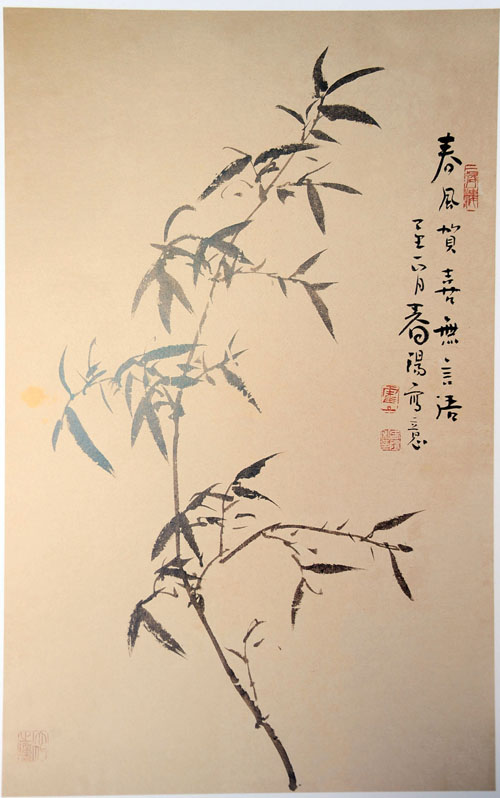 春風賀喜無言語
六月春陽寫意